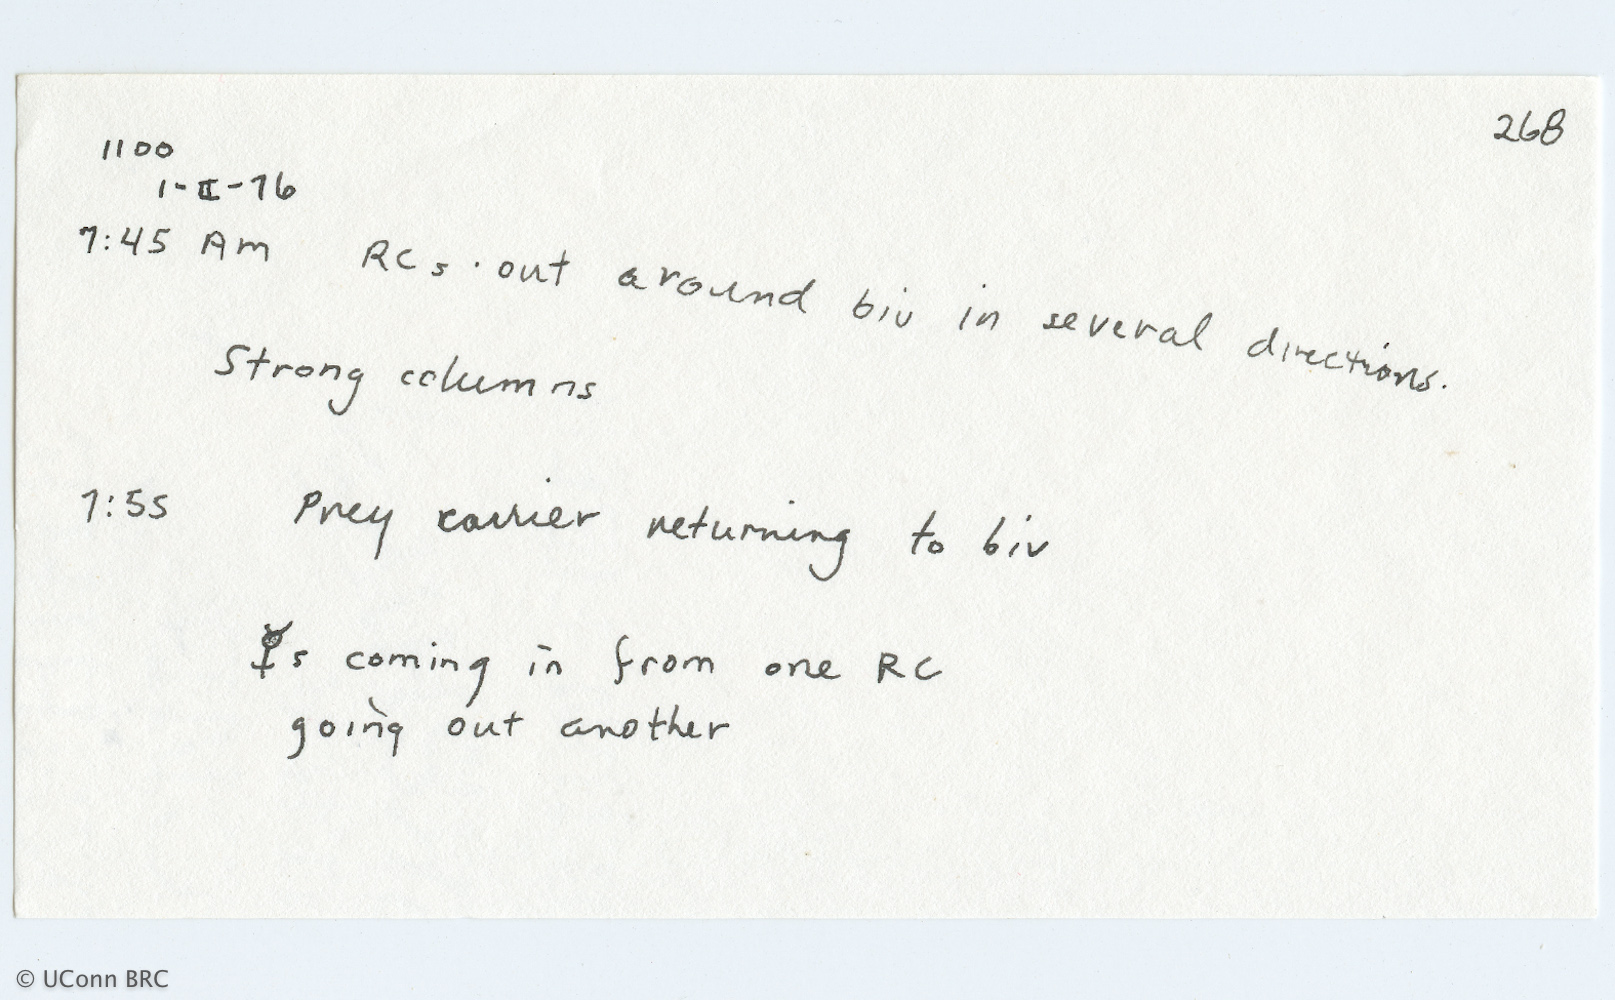 268
1100
1-II-76
7:45 Am RCs out around biv in several directions.
Strong columns
7:55 Prey carrier returning to biv
☿s coming in from one RC
going out another
© UConn BRC